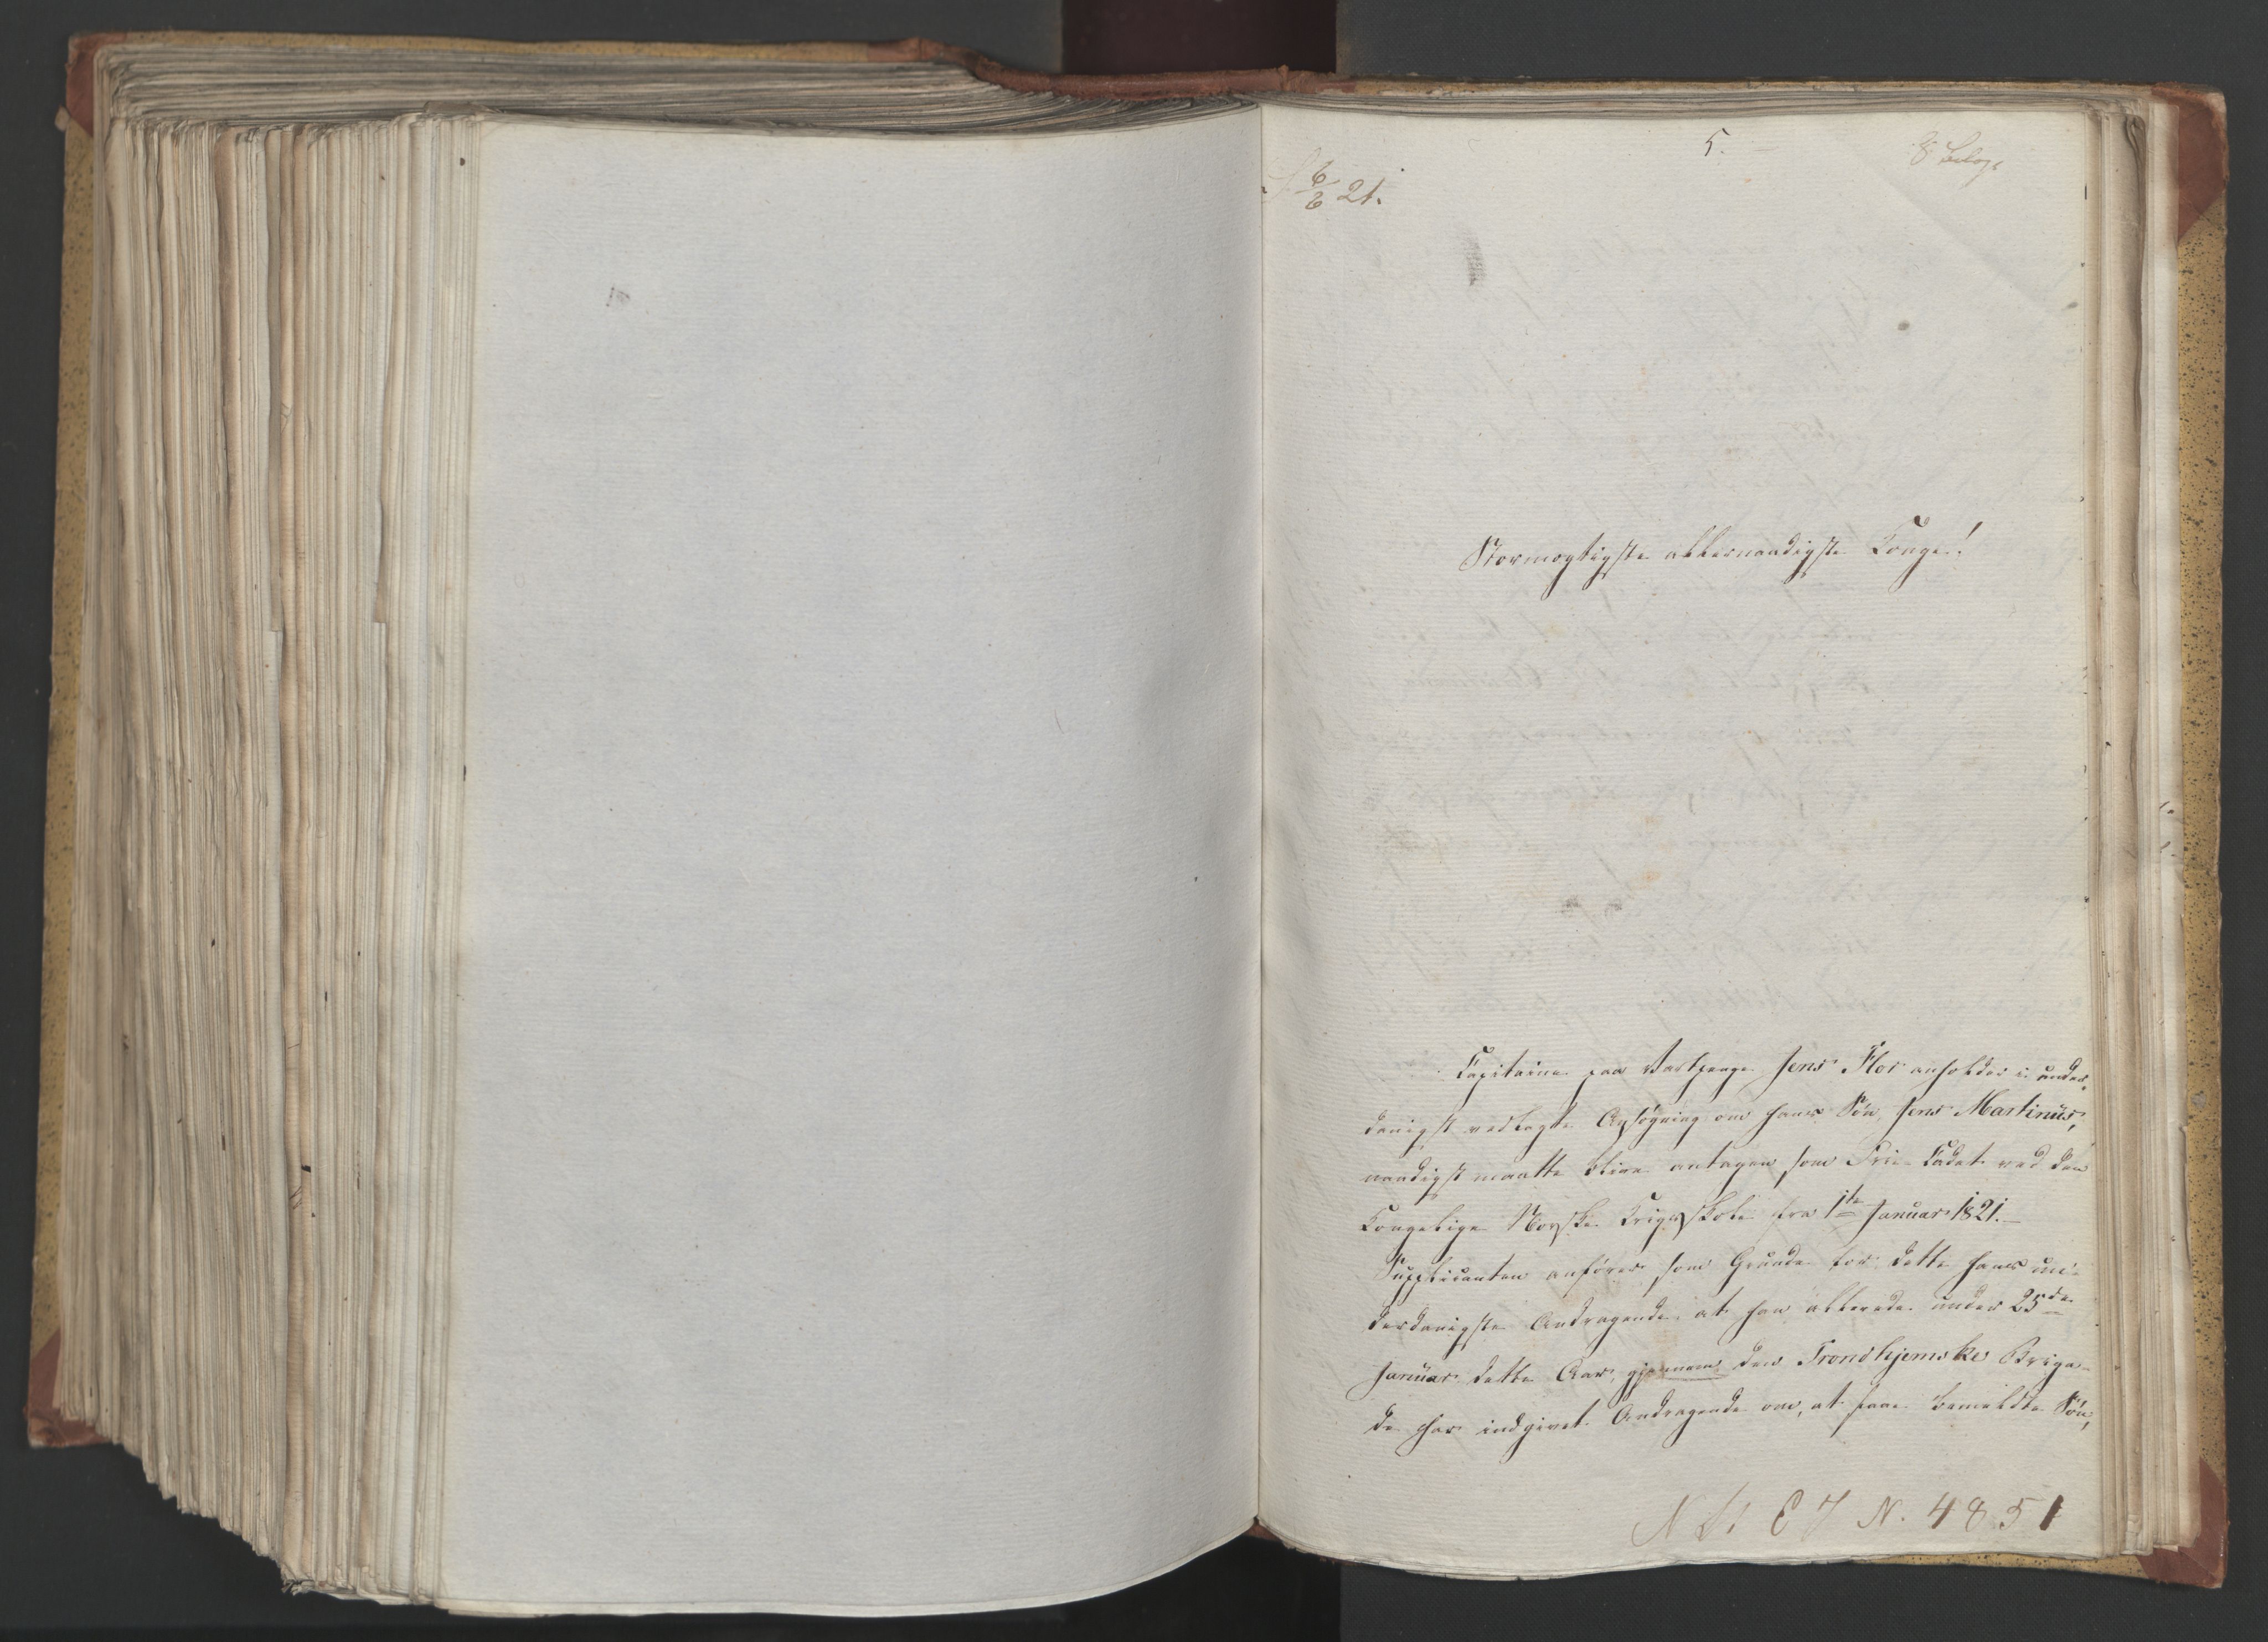 5.
8 Bilag
6/6 21.
Stormægtigste allernaadigste Konge!
Capitaine paa Vartpenge Jens Flor anholder i under-
danigst vedlagte Ansøgning om hans Søn, Jens Martinus,
naadigst maatte blive antagen som Frie-Cadet ved den
Kongelige Norske Krigsskole fra 1ste Januar 1821.-
Supplicanten anfører som Grunde for dette hans un-
derdanigste Andragende, at han allerede under 25de
Januar dette Aar, gjennem den Trondhjemske Briga-
de har indgivet Andragende om, at faae bemeldte Søn,
N. 4851